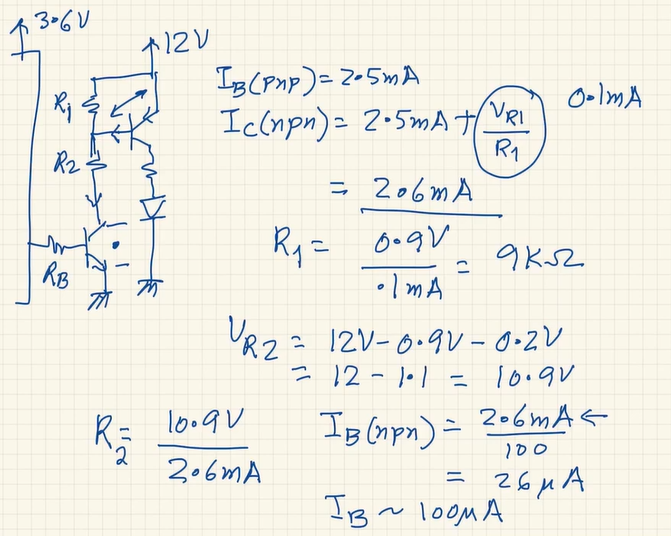 3.6V
12V
R1
R2
RB
IB(pnp) = 2.5mA
0.1mA
IC(npn) = 2.5mA + VR1/R1
= 2.6mA
R1 = 0.9V/.1mA = 9KΩ
VR2 = 12V - 0.9V - 0.2V
= 12 - 1.1 = 10.9V
R2 = 10.9V/2.6mA
IB(npn) = 2.6mA/100 ←
= 26μA
IB ~ 100μA